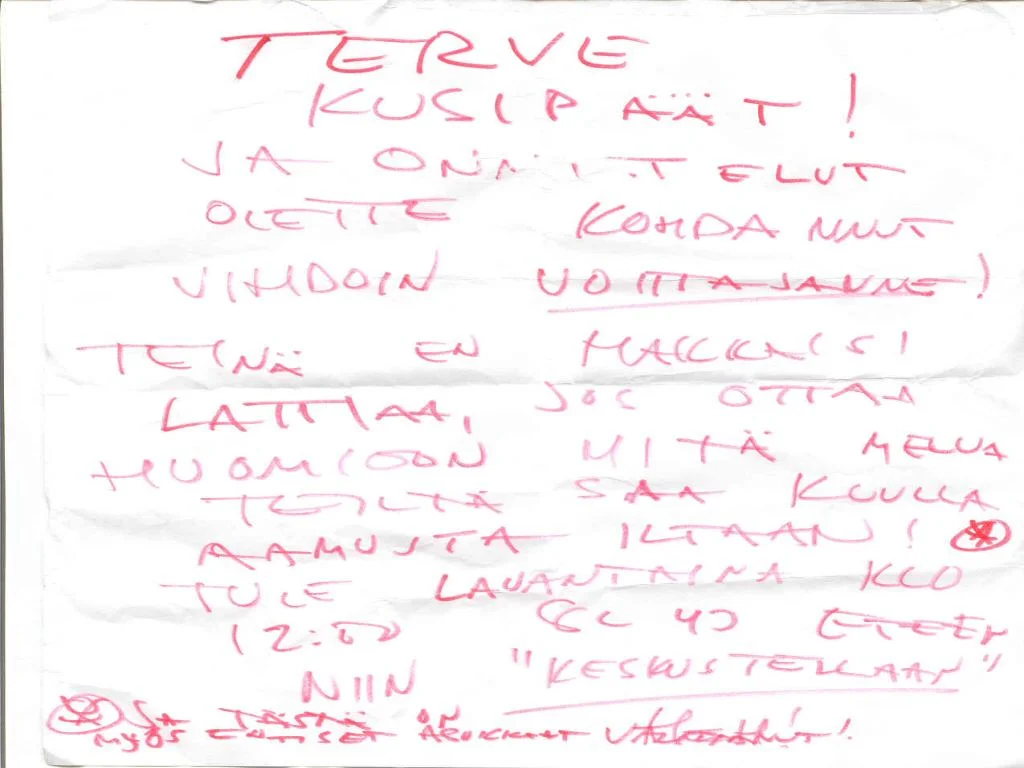 TERVE
KUSIPÄÄT!
JA ONNITTELUT
OLETTE KOHDANNUT
VIHDOIN VOITTAJANNE!
TEINÄ EN HAKKAISI
LATTIAA, JOS OTTAA
HUOMIOON MITÄ MELUA
TEILTÄ SAA KUULLA
AAMUSTA ILTAAN! *
TULE LAUANTAINA KLO
12:00 ETEEN
NIIN "KESKUSTELLAAN"
* JA TÄSTÄ ON
MYÖS ENTISET ASUKKAAT